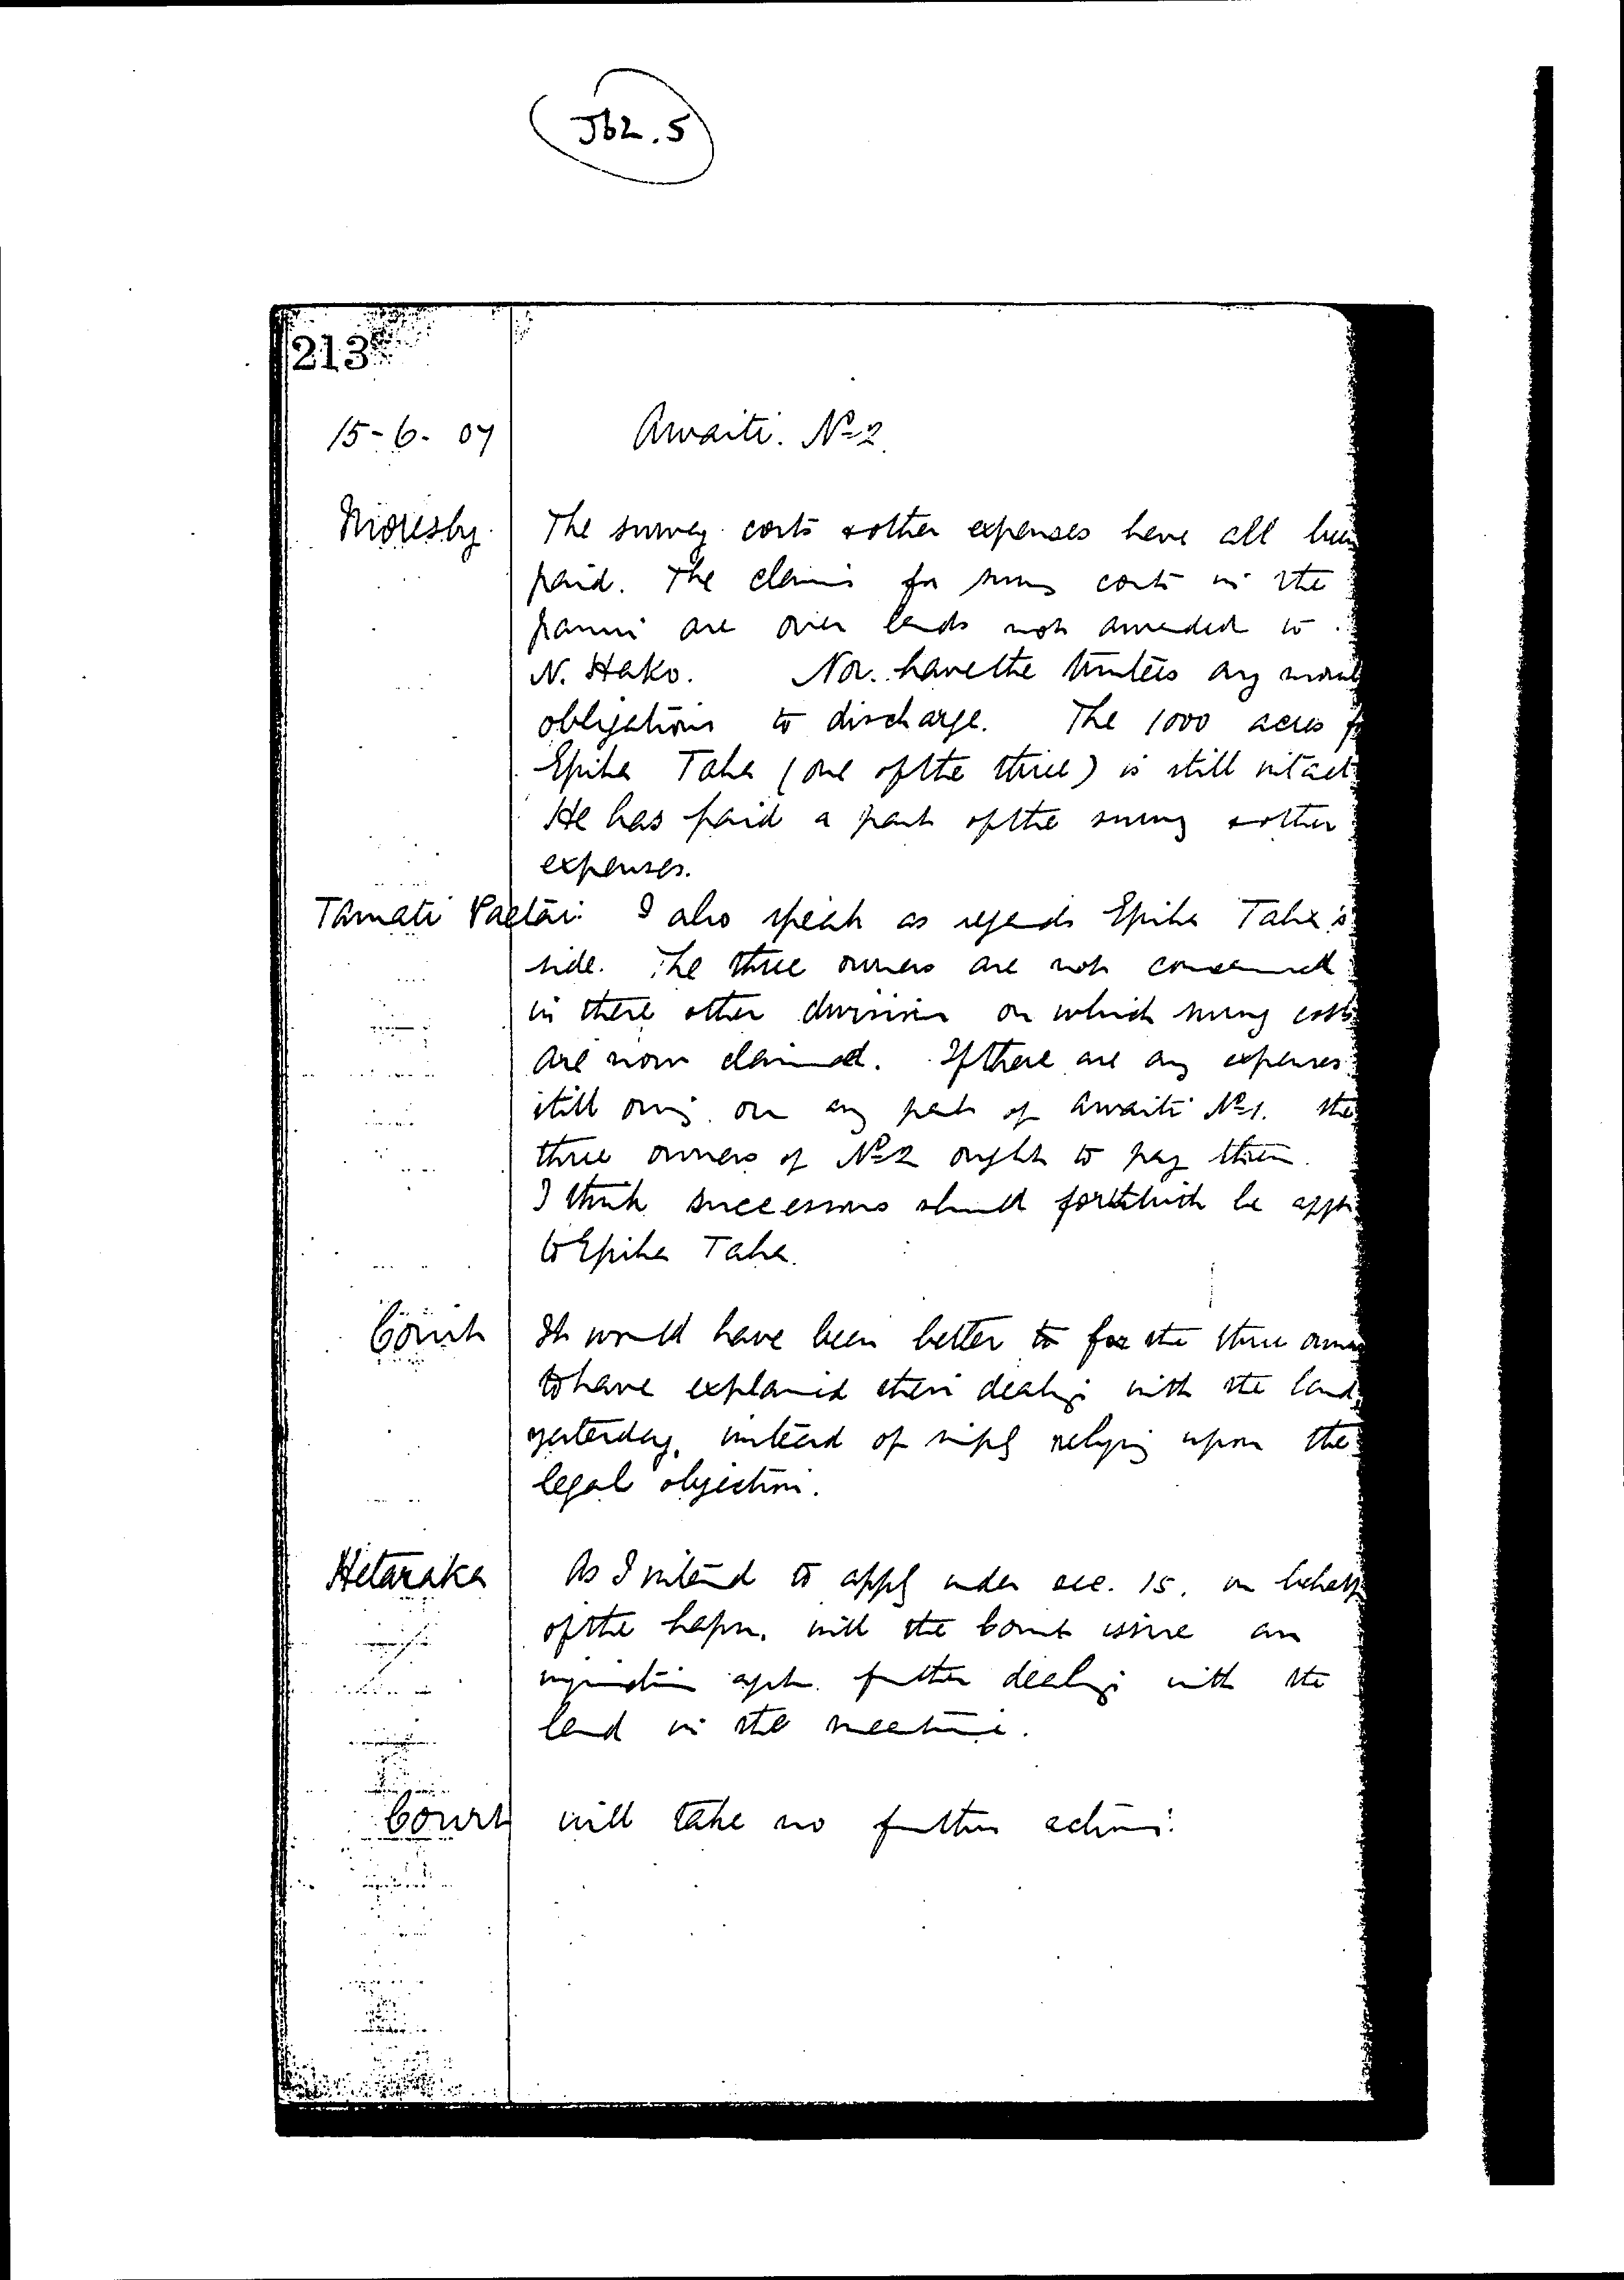 J62.5
213
15-6-07
Awaiti. No 2.
Moresby. The survey costs & other expenses have all been
paid. The claims for survey costs in the
panui are over lands not awarded to
N. Hako. Nor have the trustees any moral
obligations to discharge. The 1000 acres
Epiha Taha (one of the three) is still intact
He has paid a part of the survey & other
expenses.
Tamati Paetai: I also speak as regards Epiha Taha's
side. The three owners are not concerned
in there other division on which survey costs
are now claimed. If there are any expenses
still owing on any part of Awaiti No 1. the
three owners of No 2 ought to pay them.
I think successors should forthwith be
to Epiha Taha.
Court It would have been better to for the three
to have explained their dealings with the land
yesterday, instead of simply relying upon the
legal objection.
Hetaraka As I intend to apply under sec. 15. on behalf
of the hapu, will the Court issue an
injunction agst. further dealings with the
land in the meantime.
Court will take no further action.